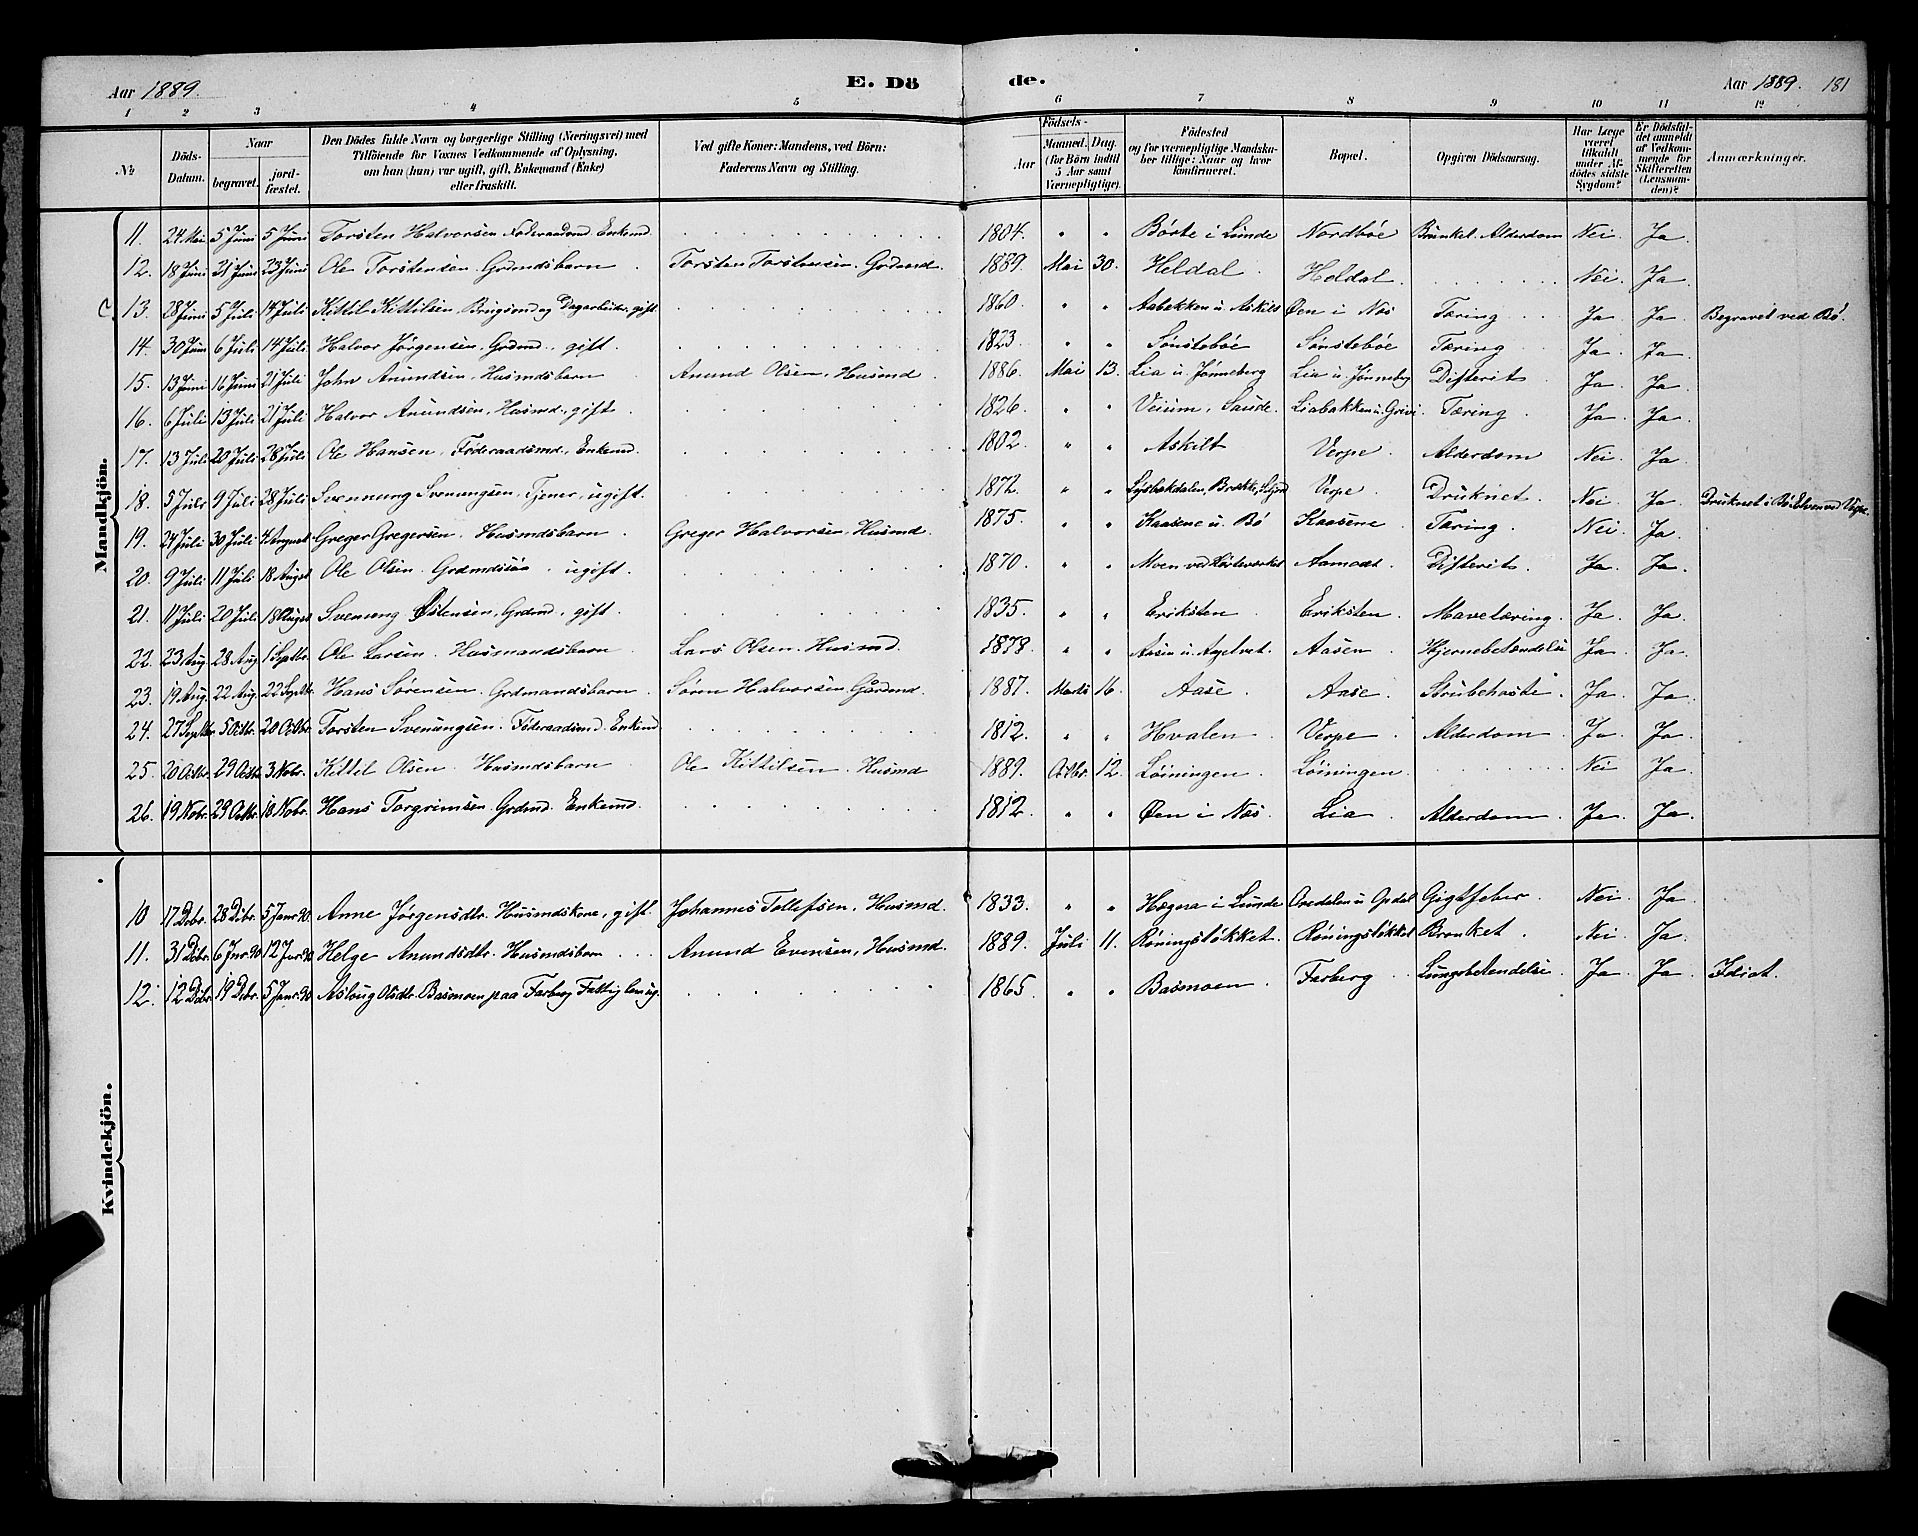 Aar 1889. E. Dö de. Aar 1889. 181
1 2 3 4 5 6 7 8 9 10 11 12
№ Döds-Datum. Naar begravet. jord-fæstet. Den Dödes fulde Navn og borgerlige Stilling (Næringsvei) med Tilföiende for Voxnes Vedkommende af Oplysning, om han (hun) var ugift, gift, Enkemand (Enke) eller fraskilt. Ved gifte Koner: Mandens, ved Börn: Faderens Navn og Stilling. Födsels- Aar Maaned. Dag. (for Börn indtil 5 Aar samt Værnepligtige). Födested og for værnepligtige Mandskaber tillige: Naar og hvor konfirmeret. Bopæl. Opgiven Dödsaarsag. Har Læge været tilkaldt under Afdödes sidste Sygdom? Er Dödsfaldet anmeldt af Vedkommende for Skifteretten (Lensmanden)? Anmærkninger.
Mandkjön.
11. 24 Mai 5 Juni 5 Juni Torsten Halvorsen Föderaadsmd. Enkemd. 1804. " " Börte i Lunde Nordböe Brunkel. Alderdom Nei. Ja.
12. 18 Juni 21 Juni 23 Juni Ole Torstensen Grdmdsbarn Torsten Torstensen. Grdmd. 1889. Mai 30. Heldal. Heldal. Nei. Ja.
13. 28 Juni 5 Juli 14 Juli Kittil Kittilsen, Brugsmd og Dagarbeider, gift 1860. " " Aabakken u. Askilt Øen i Nes Tæring Ja. Ja. Begravet ved Bö.
14. 30 Juni 6 Juli 14 Juli Halvor Jørgensen. Grdmd., gift. 1823. " " Sönsteböe Sönsteböe Tæring Ja. Ja.
15. 13 Juni 16 Juni 21 Juli John Anundsen, Husmdsbarn Anund Olsen, Husmd. 1886. Mai 13. Lia u. Jönneberg Lia u. Jönneberg Difterit Ja. Ja.
16. 6 Juli 13 Juli 21 Juli Halvor Anundsen, Husmd., gift. 1826. " " Veium, Saude. Liabakken u. Grivi Tæring. Ja. Ja.
17. 13 Juli 20 Juli 28 Juli Ole Hansen, Föderaadsmd., Enkemd. 1802. " " Askilt Verpe. Alderdom Nei. Ja.
18. 5 Juli 9 Juli 28 Juli Svennung Svenungsen, Tjener, ugift. 1872. " " Verpe. Druknet. Nei. Ja. Druknet i Bö Elven ved Verpe.
19. 24 Juli 30 Juli 4 August Greger Gregersen. Husmdsbarn Greger Halvorsen, Husmd. 1875. " " Kaasene u. Bö Kaasene Tæring. Nei. Ja.
20. 9 Juli 11 Juli 18 Augst Ole Olsen. Grdmdssön. ugift. 1870. " " Moen ved Aamodt Difterit. Ja. Ja.
21. 11 Juli 20 Juli 18 Augst Svenung Østensen, Grdmd., gift. 1835. " " Eriksten Eriksten. Mavetæring. Ja. Ja.
22. 23 Aug. 28 Aug. 1 Septbr. Ole Larsen. Husmandsbarn Lars Olsen. Husmd. 1878. " " Aasen u. Aasen. Hjernebetændelse Ja. Ja.
23. 19 Aug. 22 Aug. 22 Septbr. Hans Sørensen. Grdmandsbarn. Sören Halvorsen, Gårdmd. 1887. Marts 16. Aase. Aase. Strubehoste. Ja. Ja.
24. 27 Septbr. 5 Octbr. 20 Octbr. Torsten Svenungsen. Föderaadsmd. Enkemd 1812. " " Hvalen. Verpe. Alderdom. Ja. Ja.
25. 20 Octbr. 29 Octbr. 3 Nobr. Kittil Olsen. Husmdsbarn Ole Kittilsen, Husmd 1889. Octbr. 12. Löiningen. Löiningen. Nei Ja.
26. 19 Nobr. 29 Octbr. 10 Nobr. Hans Torgrimsen. Grdmd. Enkemd. 1812. " " Øen i Nes. Lia. Alderdom. Ja. Ja.
Kvindekjön.
10 17 Debr. 28 Debr. 5 Janr 90 Anne Jørgensdtr. Husmdskone, gift. Johannes Tollefsen, Husmd. 1833. " " Hægna i Lunde Oredalen u. Opdal Gigtfeber. Nei. Ja.
11. 31 Debr. 6 Jnr. 90 12 Jnr. 90 Helge Anundsdtr. Husmdsbarn Anund Evensen, Husmd. 1889. Juli 11. Röningslökket. Röningslökket Bronket. Nei Ja.
12. 12 Debr. 19 Debr. 5 Janr. 90 Aslaug Olsdtr. Basmoen paa Farberg Fattiglem ug. 1865. " " Basmoen. Farberg Lungebetændelse. Ja. Ja. Idiot.